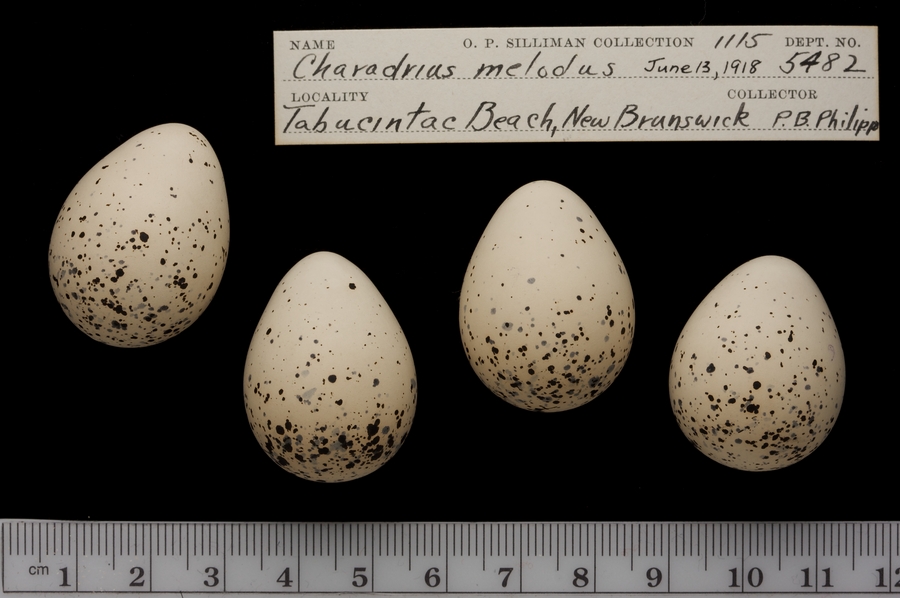 NAME O. P. SILLIMAN COLLECTION 1115 DEPT. NO.
Charadrius melodus June 13, 1918 5482
LOCALITY COLLECTOR
Tabucintac Beach, New Brunswick P.B. Philipp
cm 1 2 3 4 5 6 7 8 9 10 11 12